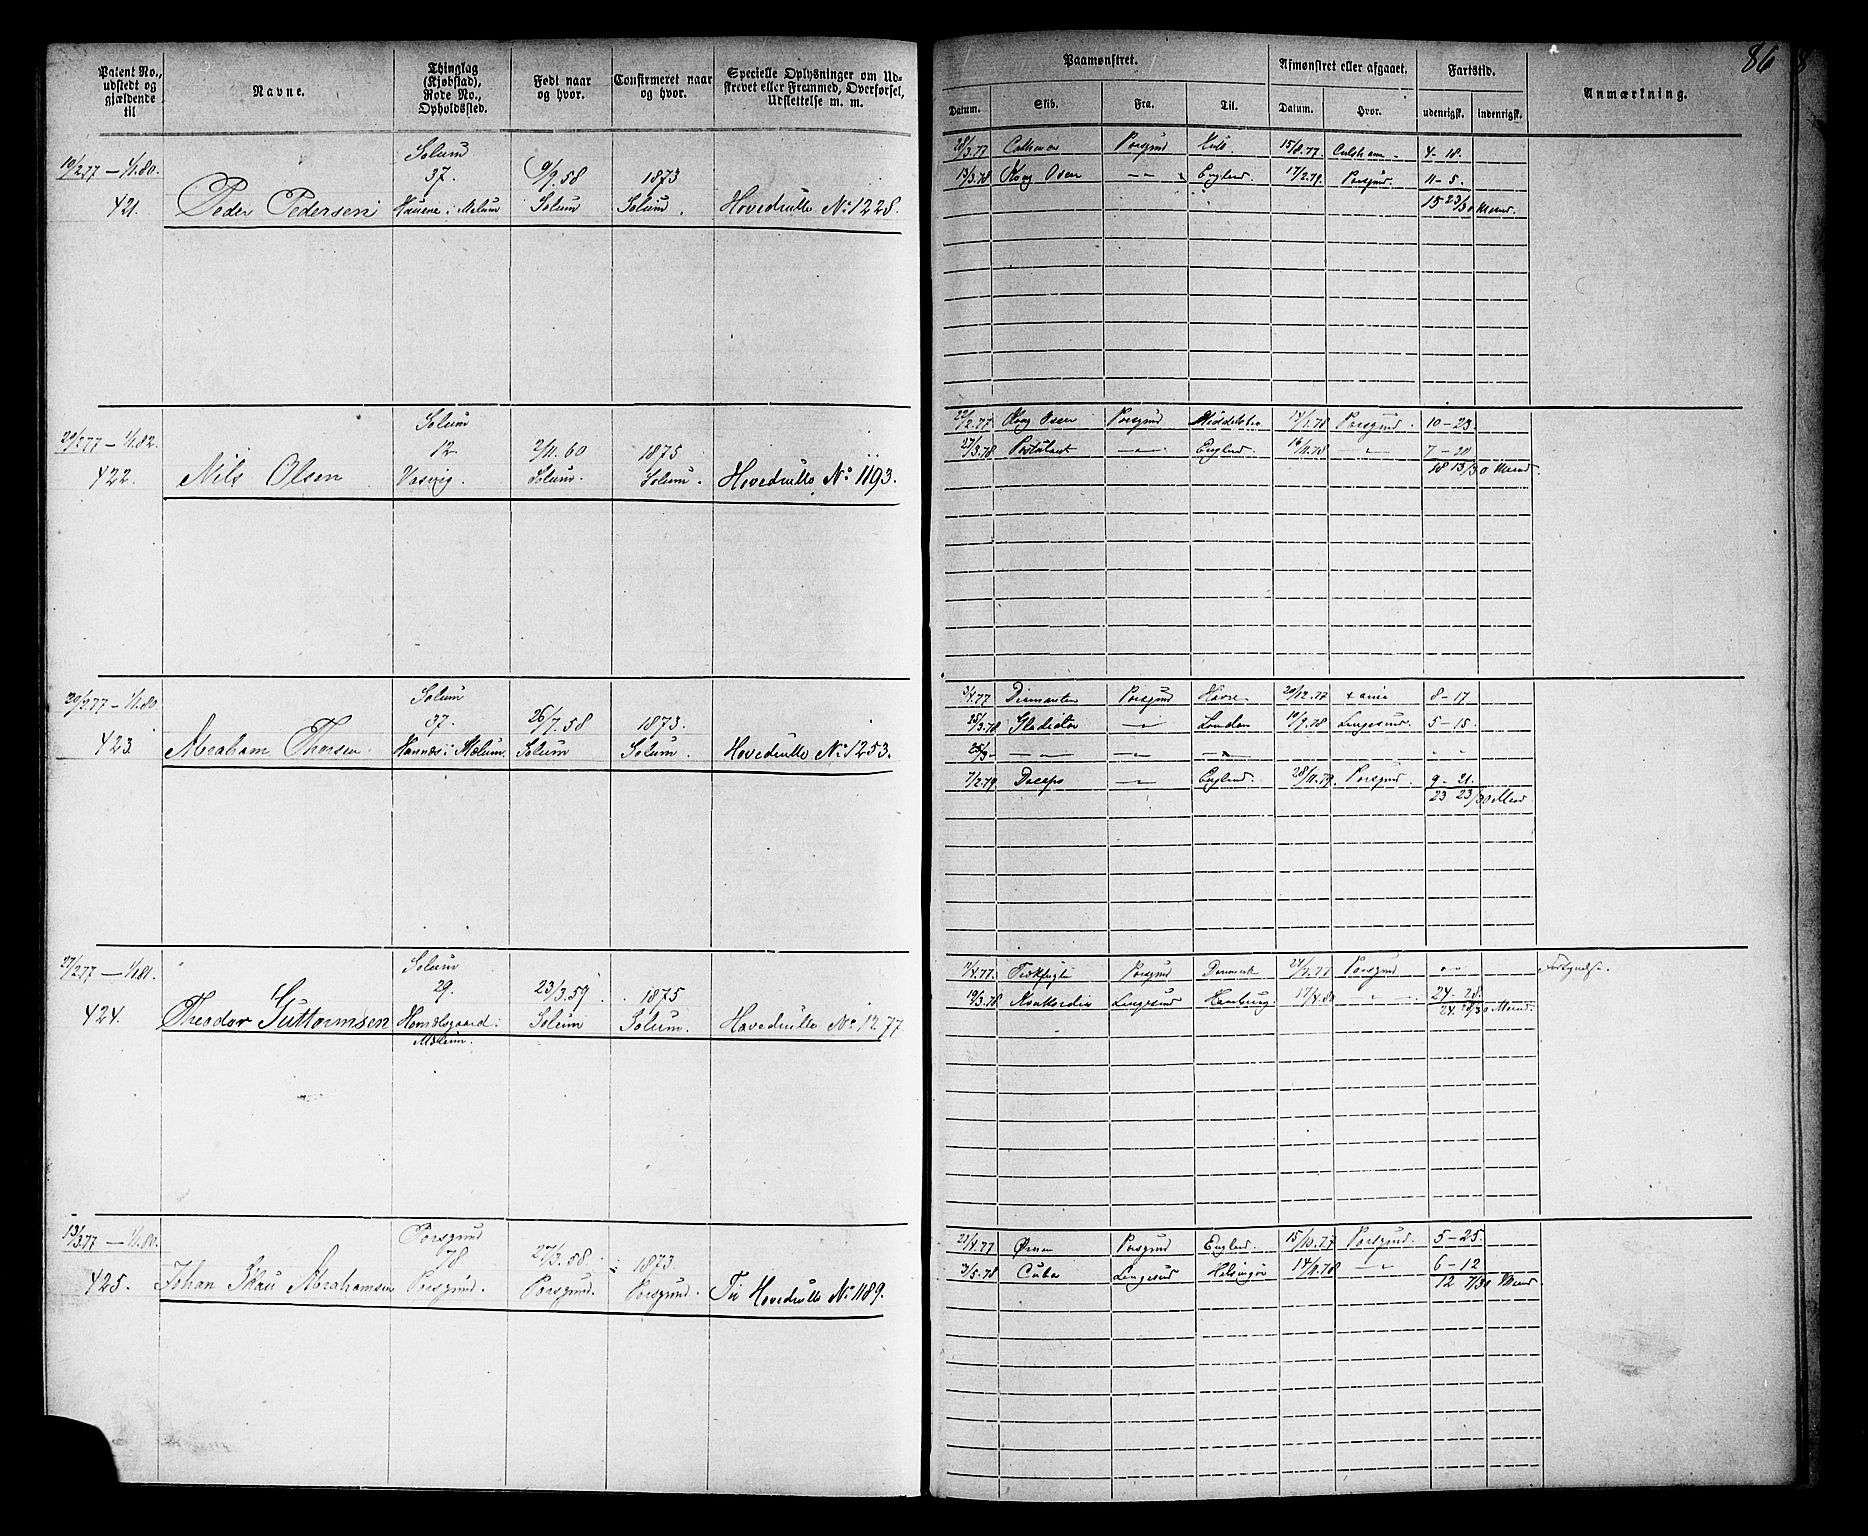 86
Patent No., udstedt og gjældende til
Navne.
Thinglag (Kjøbstad), Rode No., Opholdssted.
Født naar og hvor.
Confirmeret naar og hvor.
Specielle Oplysninger om Udskrevet eller Fremmed, Overførsel, Udslettelse m. m.
Paamønstret.
Afmønstret eller afgaaet.
Fartstid.
Anmærkning.
Datum. Skib. Fra. Til. Datum. Hvor. udenrigsk. indenrigsk.
19/2.77 — 1/1.80.
421. Peder Pedersen
Solum
37.
i Mælum
9/9.58
Solum
1873
Solum.
Hovedrulle No 1228.
28/3.77 Porsgrund Hull 15/8.77. 4-18.
13/3.78 Kong Osen —"— England. 17/2.79. Porsgrund. 11-5.
15 23/30 Maned.
20/2.77 — 1/1.82.
422. Nils Olsen
Solum
12
Vasvig.
2/11.60
Solum.
1875
Solum.
Hovedrulle No 1193.
22/2.77 Kong Osen Porsgrund Middelsbro 14/1.78 Porsgrund. 10-23
27/3.78 —"— England. 16/11.78 —"— 7-20
18 13/30 Maned
20/2.77 — 1/1.80
423. Abraham Thorsen.
Solum
37.
i Mælum
26/7.58
Solum
1873.
Solum.
Hovedrulle No 1253.
3/4.77 Diamanten Porsgrund Havre 20/12.77 8-17
25/3.78 Gladiator —"— London. 10/9.78 Langesund. 5-15.
25/9 — —"— —"— —"—
7/2.79 —"— England. 28/11.79. Porsgrund 9-21.
23 23/30 Maned
27/2.77 — 1/1.81.
424. Theodor Guttormsen
Solum
29.
i
Mælum.
23/3.59
Solum
1875
Solum.
Hovedrulle No 1277
7/4.77. Porsgrund Danmark 27/9.77 Porsgrund
19/3.78 Konkordia Langesund Hamburg. 17/4.80 24-28.
24 28/30 Maned.
13/3.77 — 1/1.80.
425. Johan Skau Abrahamsen
Porsgrund
78
Porsgrund.
27/3.58.
Porsgrund.
1873.
Porsgrund.
Til Hovedrulle No 1189.
21/4.77 Ørnen Porsgrund England. 15/10.77 Porsgrund. 5-25.
3/5.78 Cuba Langesund Helsingør 14/11.78 —"— 6-12
12 7/30 Maned